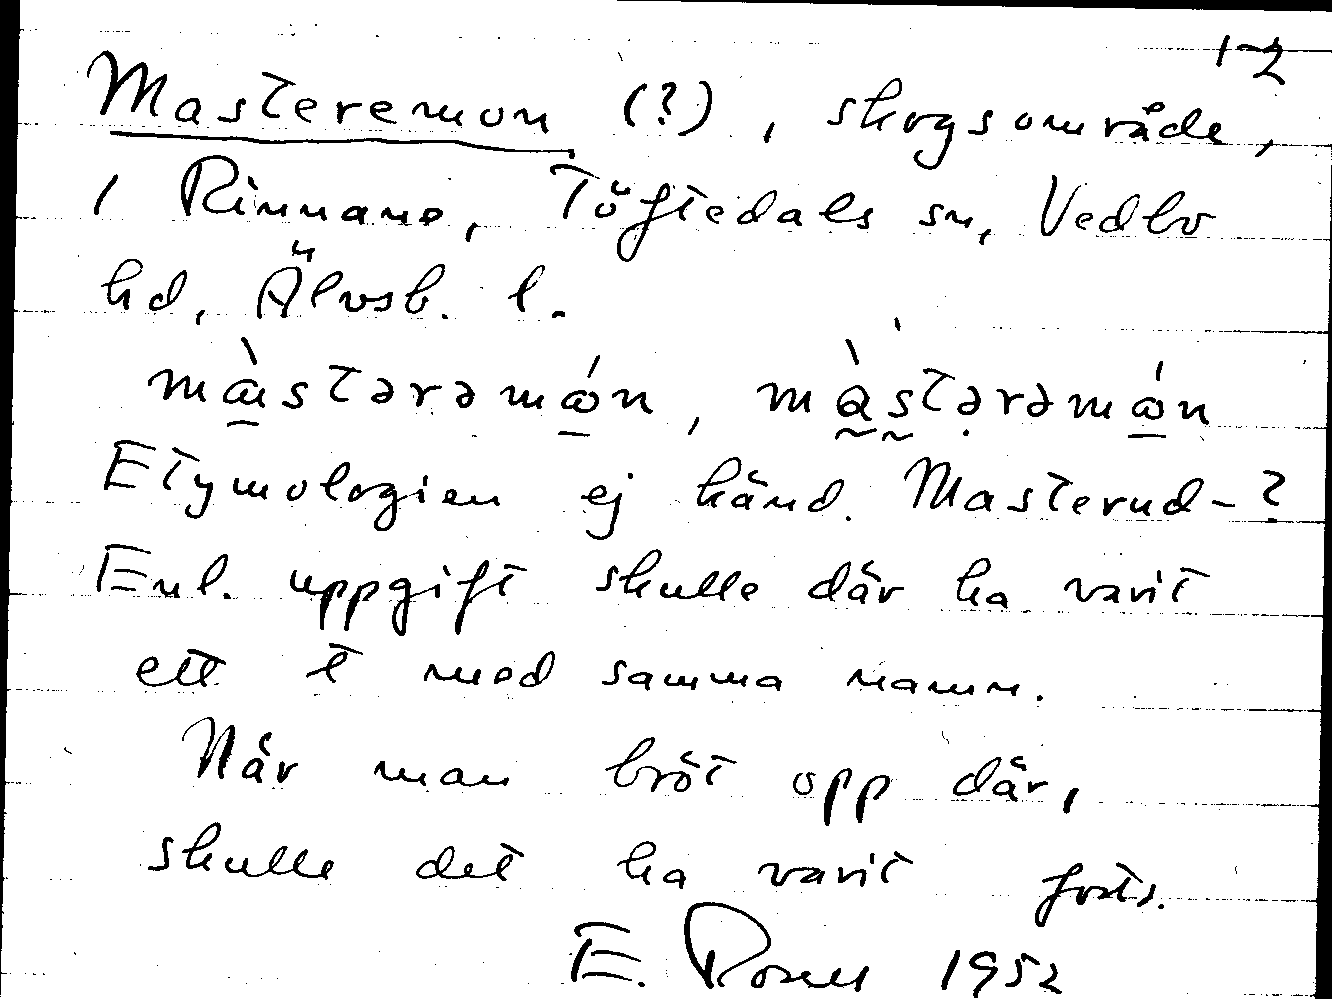 1-2
Masteremon (?), skogsområde,
i Rinnane, Töftedals sn, Vedbo
hd, Älvsb. l.
màstərəmón, màstərəmón
Etymologien ej känd. Masterud-?
Enl. uppgift skulle där ha varit
ett t med samma namn.
När man bröt opp där,
skulle det ha varit forts.
E. 1952